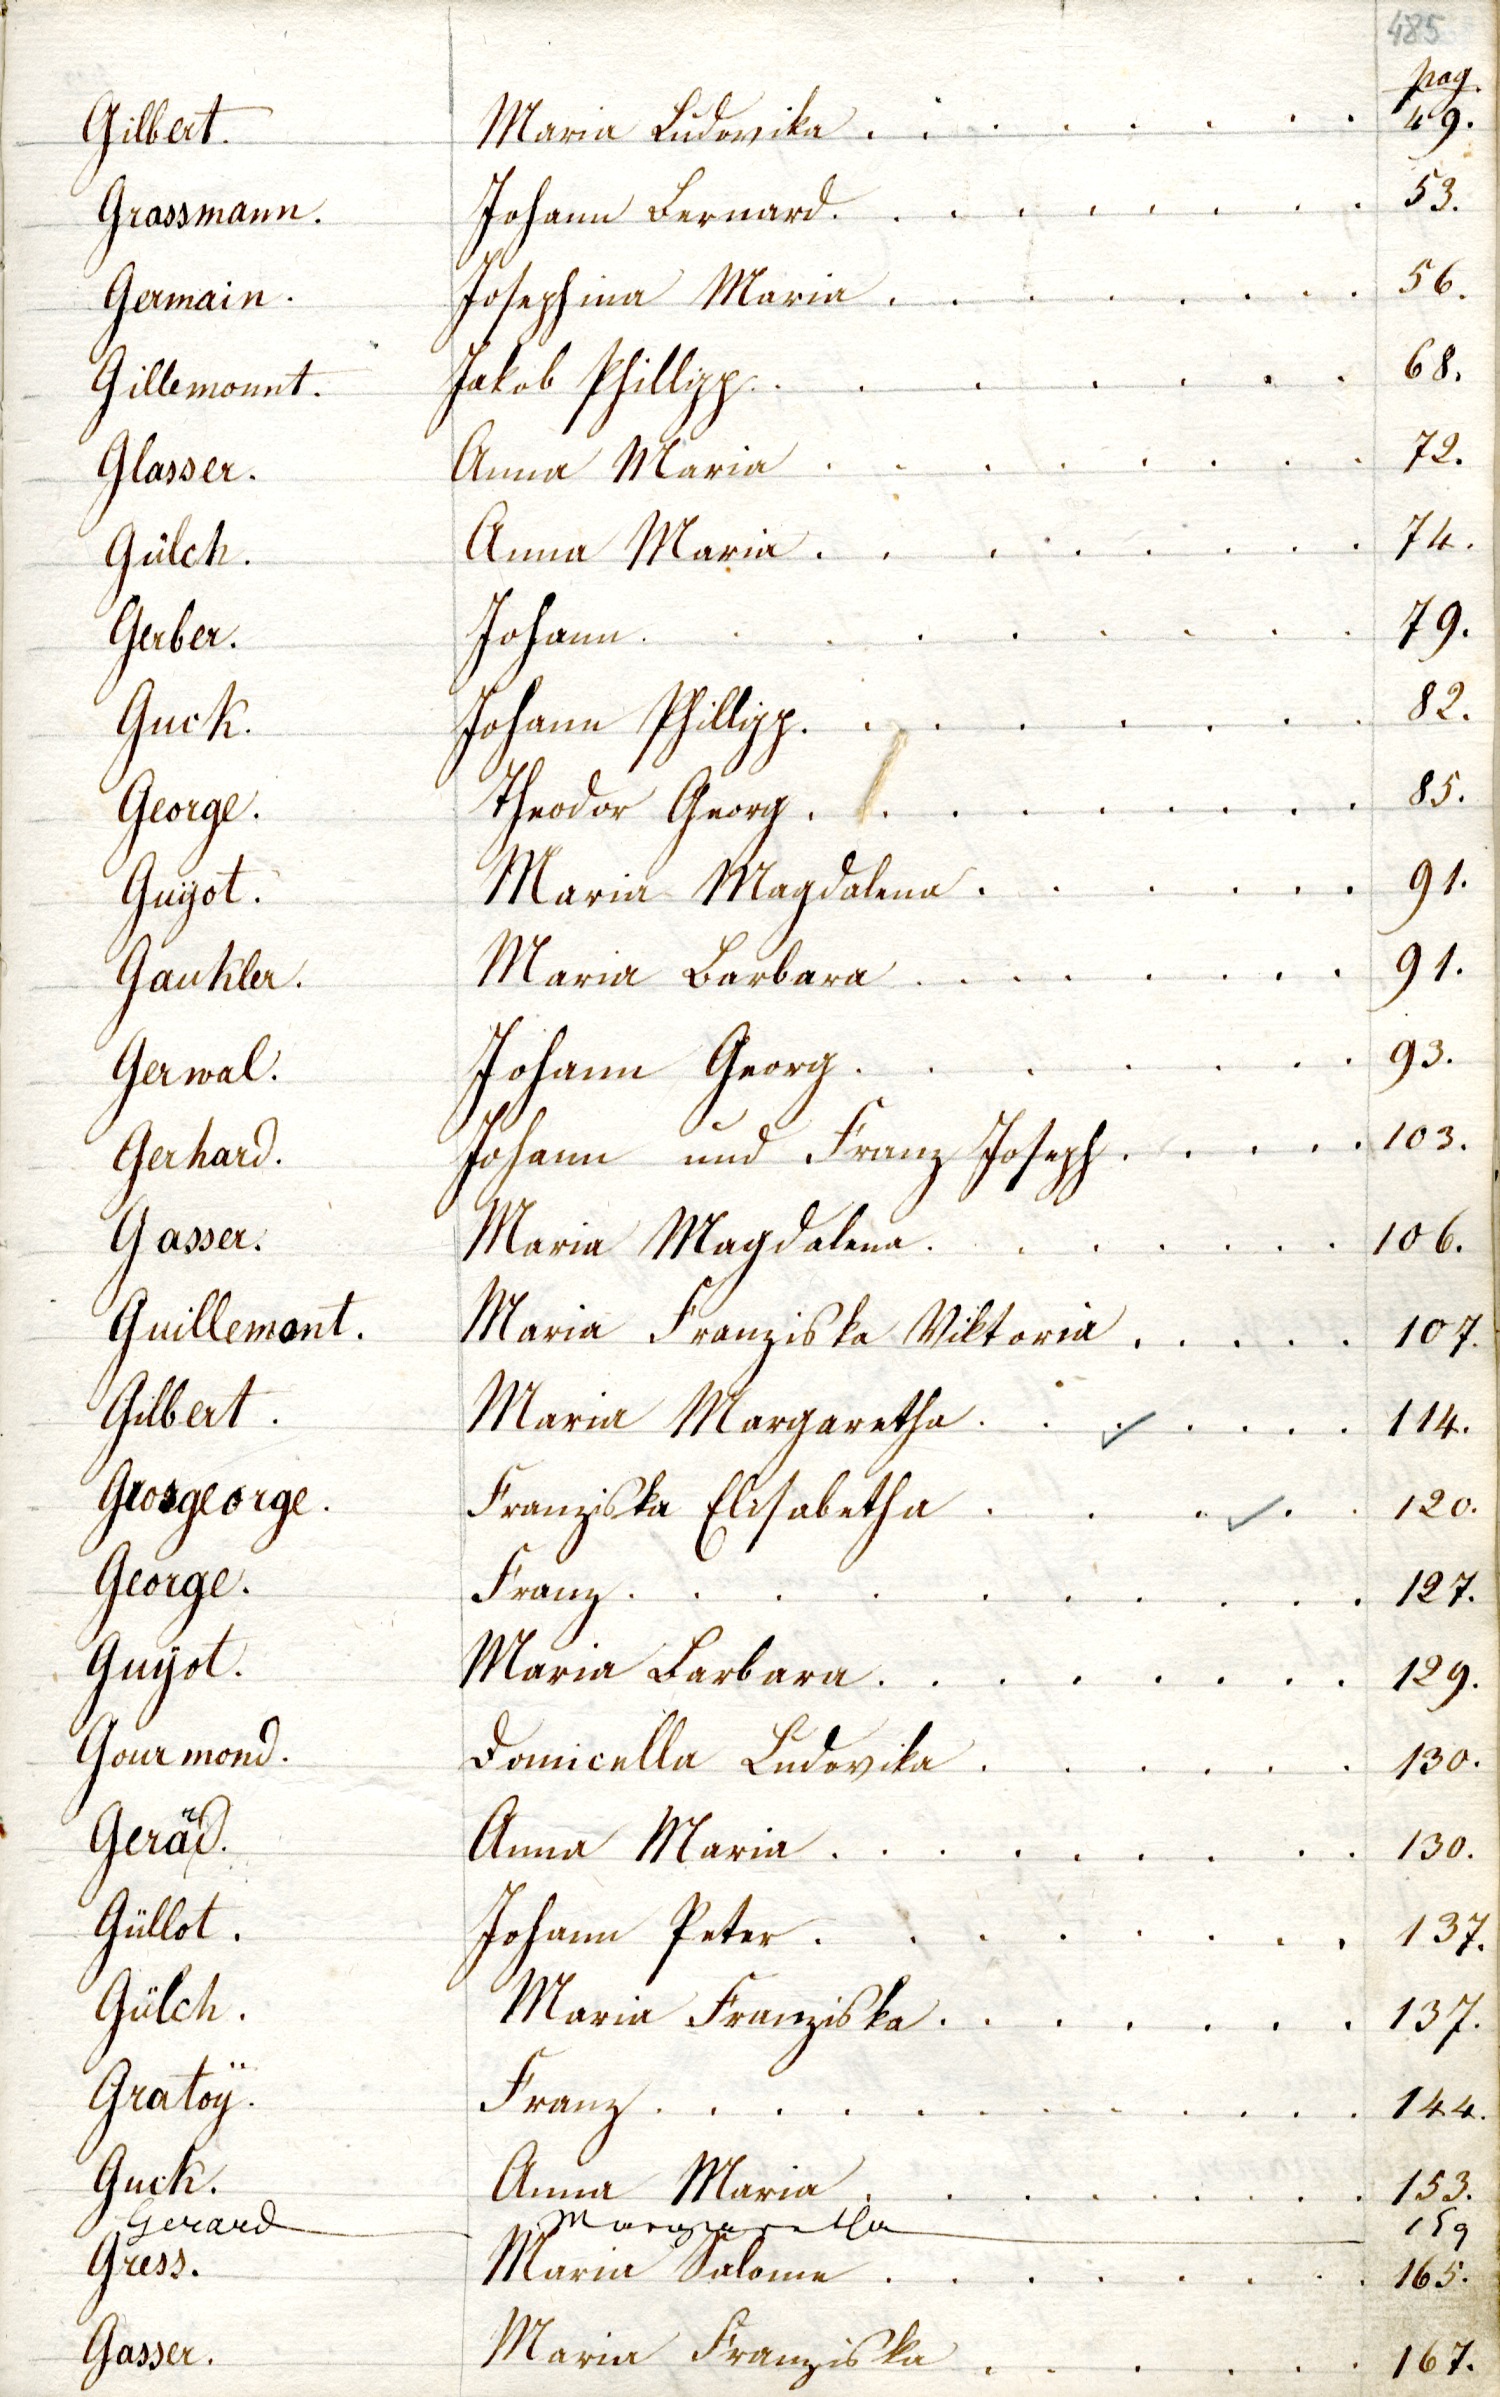 485
pag.
Gilbert. Maria Ludovika . . . . . . . . 49.
Grassmann. Johann Bernard. . . . . . . . 53.
Germain. Josephina Maria . . . . . . . . 56.
Gillemonnt. Jakob Phillipp. . . . . . . . 68.
Glasser. Anna Maria . . . . . . . . 72.
Gülch. Anna Maria . . . . . . . . 74.
Gerber. Johann . . . . . . . . . 79.
Guck. Johann Phillipp. . . . . . . . 82.
George. Theodor Georg . . . . . . . . 85.
Guÿot. Maria Magdalena . . . . . . 91.
Gaukler. Maria Barbara . . . . . . . 91.
Gerwal. Johann Georg . . . . . . . 93.
Gerhard. Johann und Franz Joseph . . . . . 103.
Gasser. Maria Magdalena . . . . . . . 106.
Guillemont. Maria Franziska Viktoria . . . . . 107.
Gilbert. Maria Margaretha . . . ✓ . . . . 114.
Grosgeorge. Franziska Elisabetha . . . ✓ . . 120.
George. Franz . . . . . . . . . 127.
Guÿot. Maria Barbara . . . . . . . . 129.
Gourmond. Domicella Ludovika . . . . . . 130.
Gerärd. Anna Maria . . . . . . . . 130.
Güllot. Johann Peter . . . . . . . . 137.
Gülch. Maria Franziska . . . . . . . 137.
Gratoÿ. Franz . . . . . . . . . . 144.
Guck. Anna Maria . . . . . . . . 153.
Gerard Margaretha 159
Gress. Maria Salome . . . . . . . . 165.
Gasser. Maria Franziska . . . . . . 167.